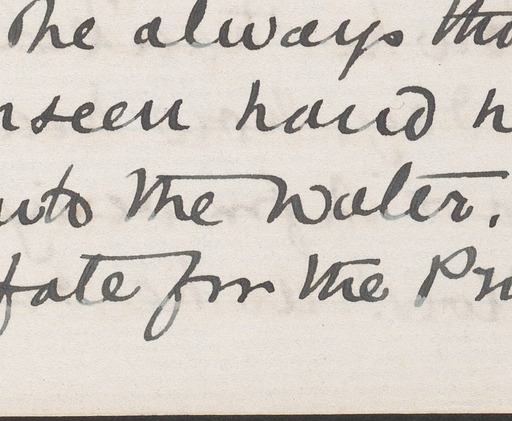 he always tho
nseen hand h
into the water.
fate for the Pr